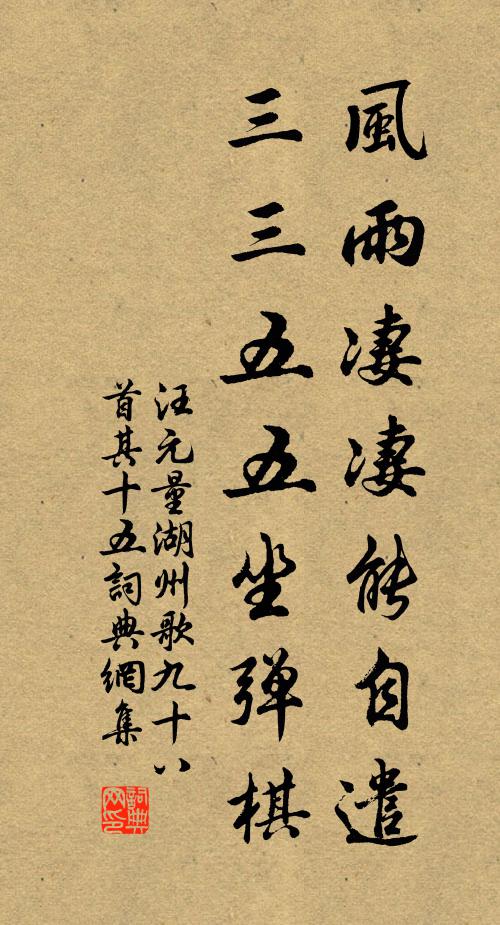 風雨淒淒能自遣
三三五五坐弹棋
汪元量湖州歌九十八
首其十五詞典網集
詞典
网印